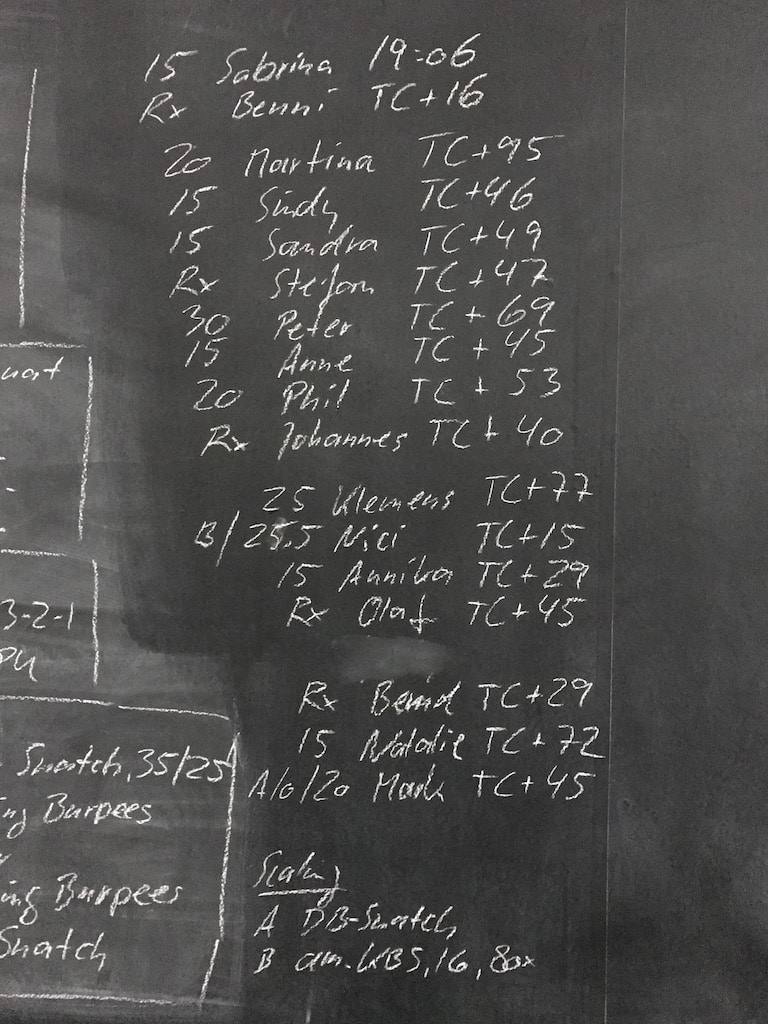 15 Sabrina 19:06
Rx Benni TC+16
20 Martina TC+95
15 Sindy TC+46
15 Sandra TC+49
Rx Stefan TC+47
30 Peter TC+69
15 Anne TC+45
20 Phil TC+53
Rx Johannes TC+40
25 Klemens TC+77
B/25.5 Nici TC+15
15 Annika TC+29
Rx Olaf TC+45
Rx Bernd TC+29
15 Natalie TC+72
A/o/20 Mark TC+45
uat
3-2-1
PU
Snatch, 35/25
ing Burpees
ing Burpees
Snatch
Scaling
A DB-Snatch
B am. KBS, 16, 80x